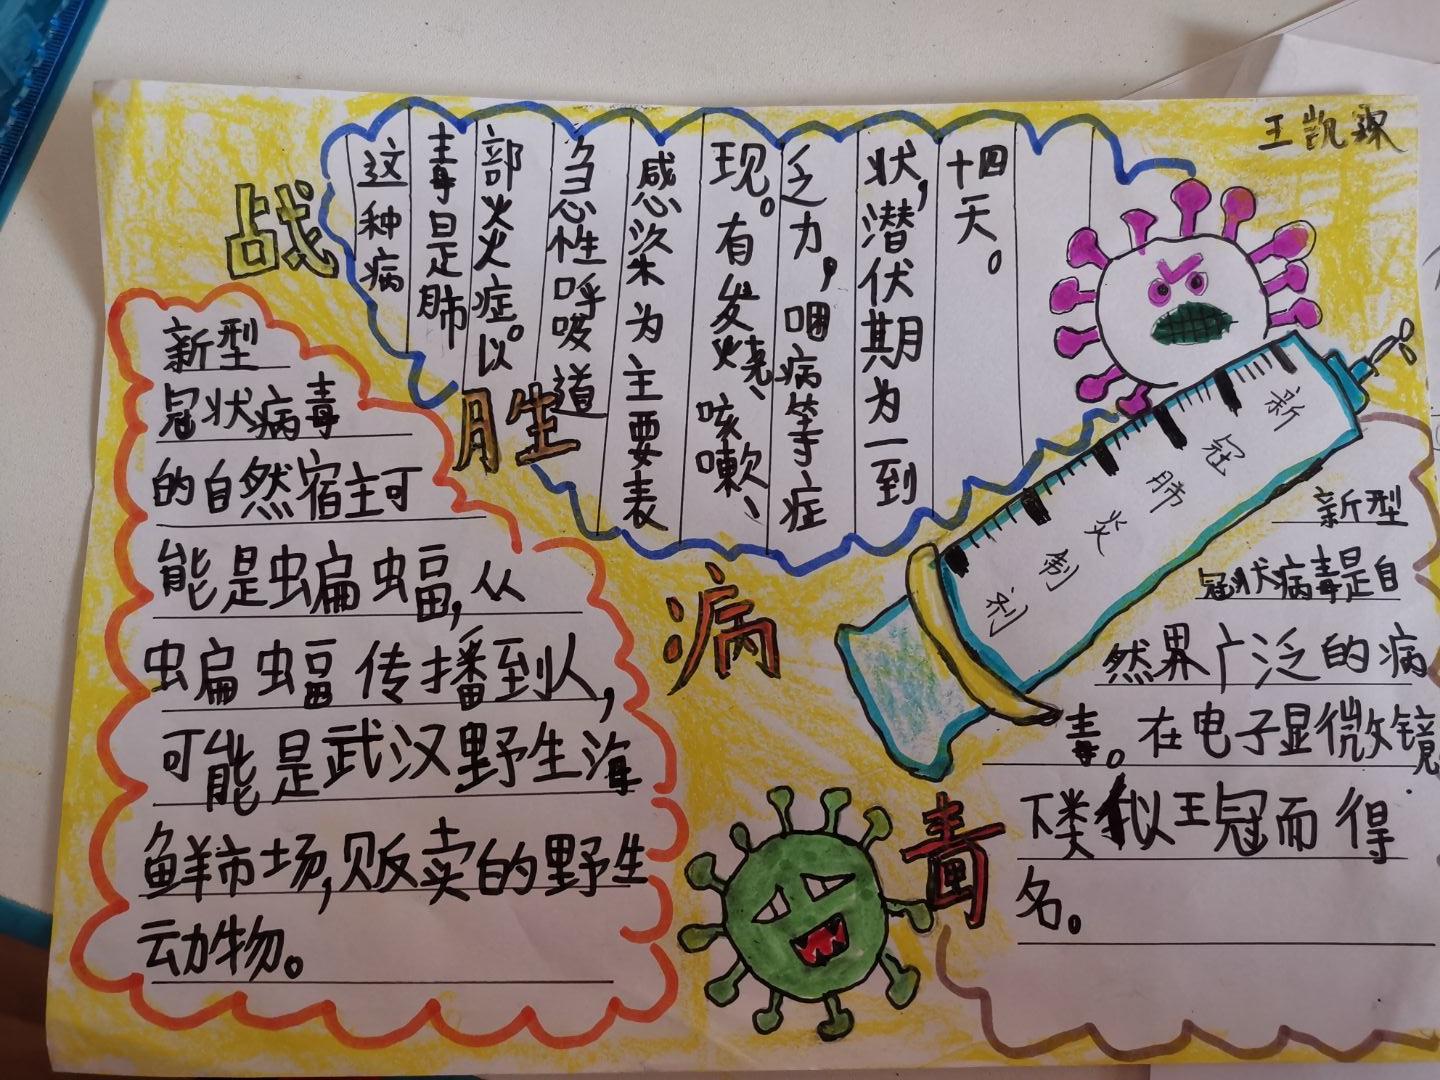 王凯琛
战
胜
病
毒
这种病
毒是肺
部炎症。以
急性呼吸道
感染为主要表
现。有发烧、咳嗽、
乏力，咽病等症
状，潜伏期为一到
十四天。
新型
冠状病毒
的自然宿主可
能是蝙蝠，从
蝙蝠传播到人，
可能是武汉野生海
鲜市场，贩卖的野生
动物。
新冠肺炎制剂
新型
冠状病毒是自
然界广泛的病
毒。在电子显微镜
下类似王冠而得
名。